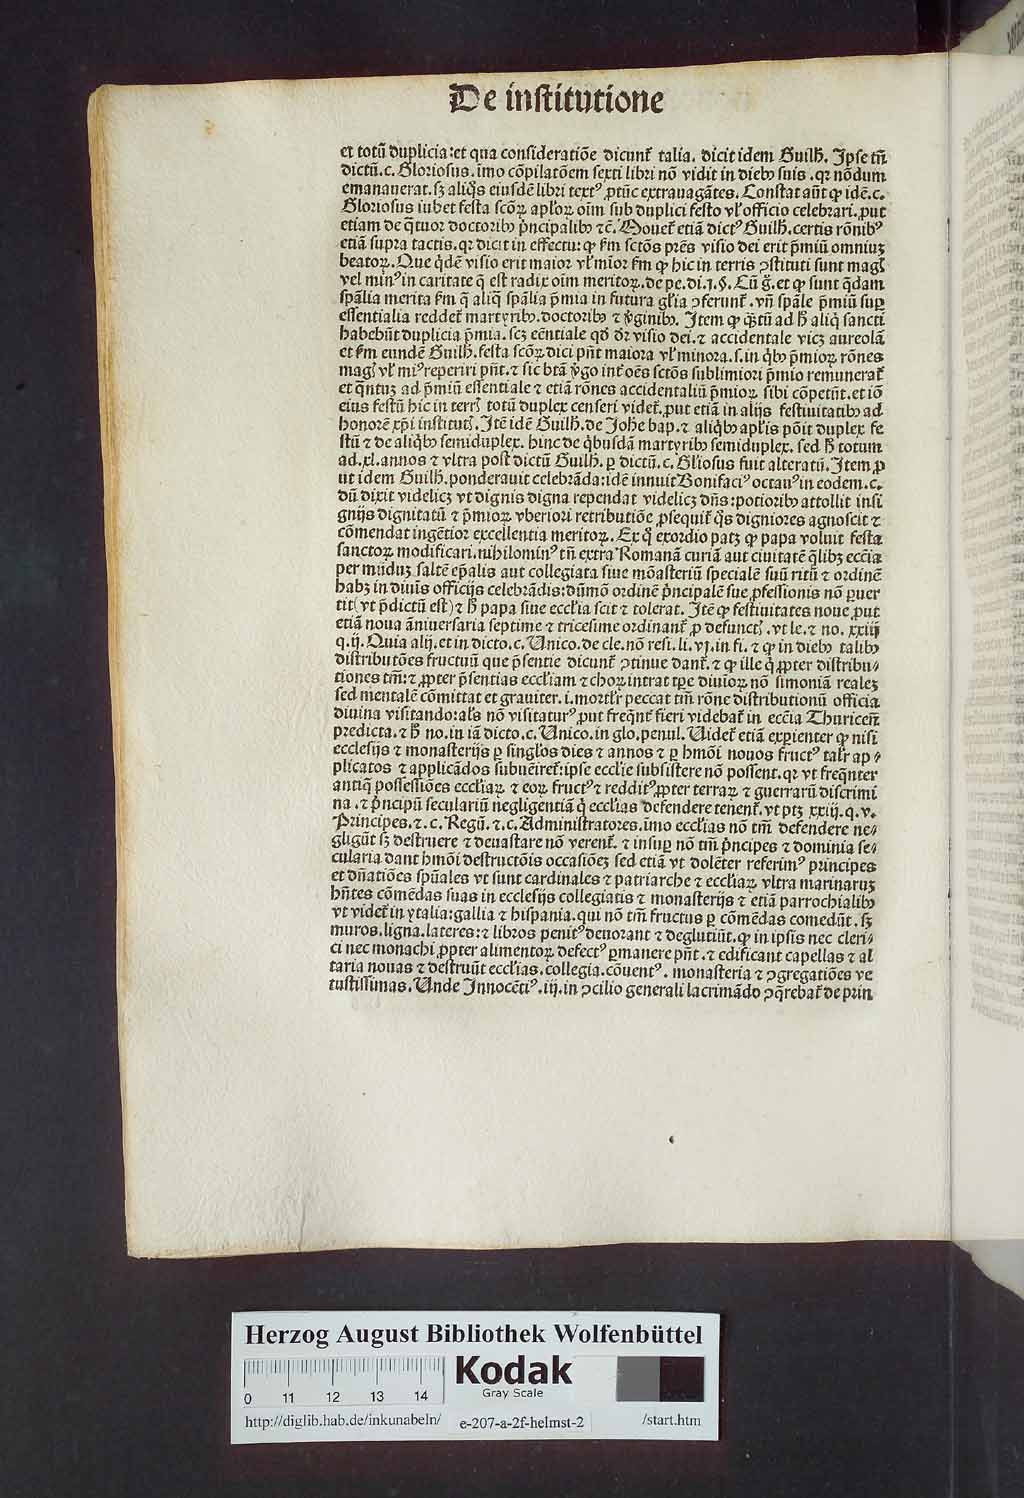 De institutione
et totū duplicia: et qua consideratiōe dicunt᷑ talia. dicit idem Guilħ. Ipse tn̄
dictū. c. Gloriosus. imo cōpilatōem sexti libri nō vidit in dieb₉ suis. qꝛ nōdum
emanauerat. sꝫ aliq̄s eiusdē libri textꝰ ꝓtūc extrauagātes. Constat aūt ꝙ idē. c.
Gloriosus iubet festa scōꝝ apl'oꝝ oīm sub duplici festo vl' officio celebrari. ꝓut
etiam de q̄tuor doctorib₉ p̄ncipalib₉ ⁊c̄. Mouet᷑ etiā dictꝰ Guilħ. certis rōnib₉
etiā supra tactis. qꝛ dicit in effectu: ꝙ ẜm sctōs prēs visio dei erit p̄miū omniuꝫ
beatoꝝ. Que q̄dē visio erit maior vl' mīor ẜm ꝙ hic in terris ꝯstituti sunt magꝭ
vel minꝰ in caritate q̄ est radix oīm meritoꝝ. de pe. di. ı. §. Cū g̊. et ꝙ sunt q̄dam
sp̄alia merita ẜm q̄ aliq̄ sp̄alia p̄mia in futura gl'ia ꝯferunt᷑. vn̄ sp̄ale p̄miū suꝑ
essentialia reddet᷑ martyrib₉. doctorib₉ ⁊ v̓ginib₉. Item ꝙ q̄tū ad ħ aliq̄ sancti
habebūt duplicia p̄mia. scꝫ eēntiale qd̄ dr̄ visio dei. ⁊ accidentale vicꝫ aureolā
et ẜm eundē Guilħ. festa scōꝝ dici pn̄t maiora vl' minora. s. in q̄b₉ p̄mioꝝ rōnes
magꝭ vl' miꝰ reperiri pn̄t. ⁊ sic btā v̓go int᷑ oēs sctōs sublimiori p̄mio remunerat᷑
et q̄ntuꝫ ad p̄miū essentiale ⁊ etiā rōnes accidentaliū p̄mioꝝ sibi cōpetūt. et iō
eius festū hic in terrꝭ totū duplex censeri videt᷑. ꝓut etiā in alijs festiuitatib₉ ad
honorē xp̄i institutꝭ. Itē idē Guilħ. de Joħe bap. ⁊ aliq̄b₉ apl'is pōit duplex fe
stū ⁊ de aliq̄b₉ semiduplex. hinc de q̄busdā martyrib₉ semiduplex. sed ħ totum
ad. xl. annos ⁊ vltra post dictū Guilħ. ꝑ dictū. c. Gl'iosus fuit alteratū. Item ꝓ
ut idem Guilħ. ponderauit celebrāda: idē innuit Bonifaciꝰ octauꝰ in eodem. c.
dū dixit videlicꝫ vt dignis digna rependat videlicꝫ dn̄s: potiorib₉ attollit insi
gnijs dignitatū ⁊ p̄mioꝝ vberiori retributiōe ꝓsequit᷑ q̄s digniores agnoscit ⁊
cōmendat ingētior excellentia meritoꝝ. Ex q̊ exordio patꝫ ꝙ papa voluit festa
sanctoꝝ modificari. nihilominꝰ tn̄ extra Romanā curiā aut ciuitatē q̄libꝫ eccīa
per mūduꝫ saltē ep̄alis aut collegiata siue mōasteriū specialē suū ritū ⁊ ordinē
habꝫ in diuīs officijs celebrādis: dūmō ordinē p̄ncipalē sue ꝓfessionis nō ꝑuer
tit (vt p̄dictū est) ⁊ ħ papa siue eccl'ia scit ⁊ tolerat. Itē ꝙ festiuitates noue ꝓut
etiā noua āniuersaria septime ⁊ tricesime ordinant᷑ ꝓ defunctꝭ. vt le. ⁊ no. xxiij
q. ij. Quia alij. et in dicto. c. Unico. de cle. nō resi. li. vj. in fi. ⁊ ꝙ in dieb₉ talib₉
distributōes fructuū que p̄sentie dicunt᷑ ꝯtinue dant᷑. ⁊ ꝙ ille q̄ ꝓpter distribu-
tiones tm̄: ⁊ ꝓpter p̄sentias eccl'iam ⁊ choꝝ intrat tꝑe diuioꝝ nō simoniā realeꝫ
sed mentalē cōmittat et grauiter. i. mortl'r peccat tm̄ rōne distributionū officia
diuina visitando: al's nō visitaturꝰ. ꝓut freq̄nt᷑ fieri videbat᷑ in eccīa Thuricen̄
predicta. ⁊ ħ no. in iā dicto. c. Unico. in glo. penul. Uidet᷑ etiā exꝑienter ꝙ nisi
ecclesijs ⁊ monasterijs ꝑ singl'os dies ⁊ annos ⁊ ꝑ hmōi nouos fructꝰ tal'r ap-
plicatos ⁊ applicādos subuēiret᷑: ipse eccl'ie subsistere nō possent. qꝛ vt freq̄nter
antiq̄ possessiōes eccl'iaꝝ ⁊ eoꝝ fructꝰ ⁊ redditꝰ ꝓpter terraꝝ ⁊ guerrarū discrimi
na. ⁊ p̄ncipū seculariū negligentiā q̄ eccl'ias defendere tenent᷑. vt ptꝫ xxiij. q. v.
Principes. ⁊. c. Regū. ⁊. c. Administratores. īmo eccl'ias nō tm̄ defendere ne-
gligūt sꝫ destruere ⁊ deuastare nō verent᷑. ⁊ insuꝑ nō tm̄ p̄ncipes ⁊ dominia se-
cularia dant hmōi destructōis occasiōeꝫ sed etiā vt dolēter referimꝰ principes
et dn̄atiōes spūales vt sunt cardinales ⁊ patriarche ⁊ eccl'iaꝝ vltra marinaruꝫ
hn̄tes cōmēdas suas in ecclesijs collegiatis ⁊ monasterijs ⁊ etiā parrochialib₉
vt videt᷑ in ytalia: gallia ⁊ hispania. qui nō tm̄ fructus ꝑ cōmēdas comedūt. sꝫ
muros. ligna. lateres: ⁊ libros penitꝰ deuorant ⁊ deglutiūt. ꝙ in ipsis nec cleri-
ci nec monachi ꝓpter alimentoꝝ defectꝰ ꝑmanere pn̄t. ⁊ edificant capellas ⁊ al
taria nouas ⁊ destruūt eccl'ias. collegia. cōuentꝰ. monasteria ⁊ ꝯgregatiōes ve
tustissimas. Unde Innocētiꝰ. iij. in ꝯcilio generali lacrimādo ꝯq̄rebat᷑ de prin
Herzog August Bibliothek Wolfenbüttel
0 11 12 13 14
Kodak
Gray Scale
http://diglib.hab.de/inkunabeln/ e-207-a-2f-helmst-2 /start.htm